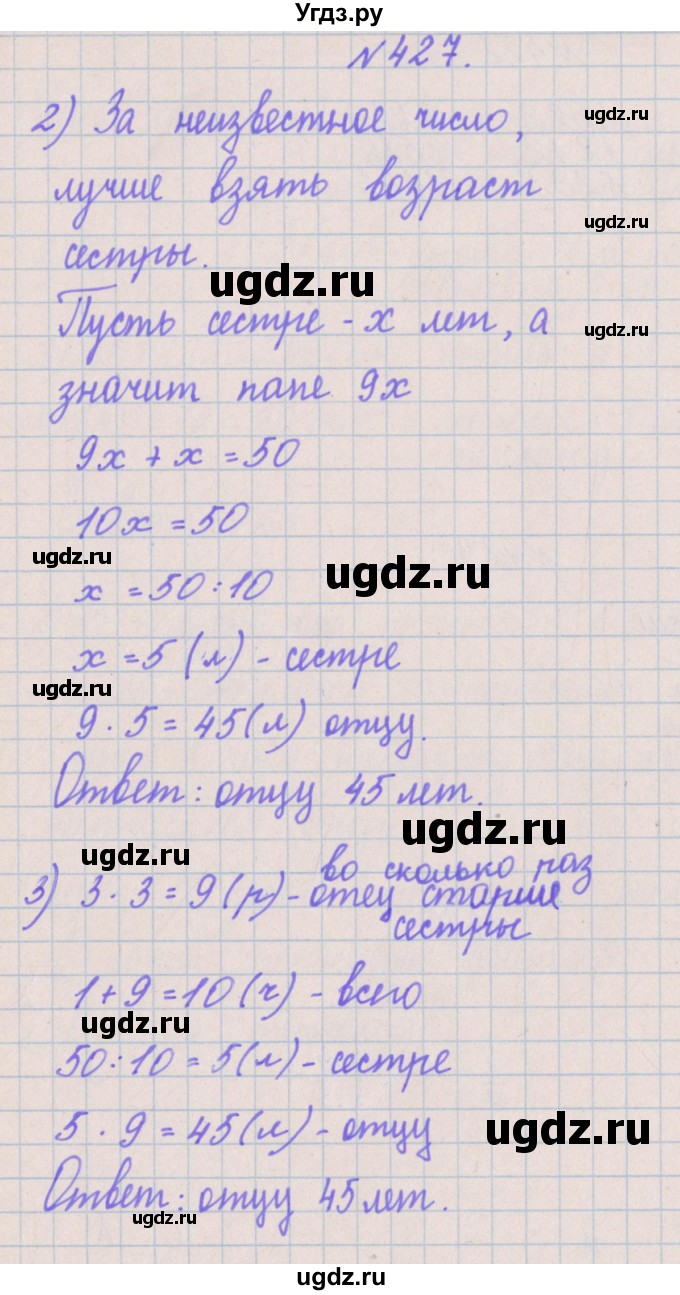 Угдз.ру
№427.
2) За неизвестное число,
ugdz.ru
лучше взять возраст
ugdz.ru
сестры.
ugdz.ru
Пусть сестре - х лет, а
ugdz.ru
значит папе 9х
9х + х = 50
10х = 50
ugdz.ru
ugdz.ru
х = 50:10
х = 5 (л) - сестре
ugdz.ru
9 · 5 = 45 (л) отцу.
Ответ: отцу 45 лет.
ugdz.ru
ugdz.ru
во сколько раз
3) 3 · 3 = 9 (р) - отец старше
сестры
1 + 9 = 10 (ч) - всего
ugdz.ru
50:10 = 5 (л) - сестре
5 · 9 = 45 (л) - отцу
ugdz.ru
Ответ: отцу 45 лет.
ugdz.ru
ugdz.ru